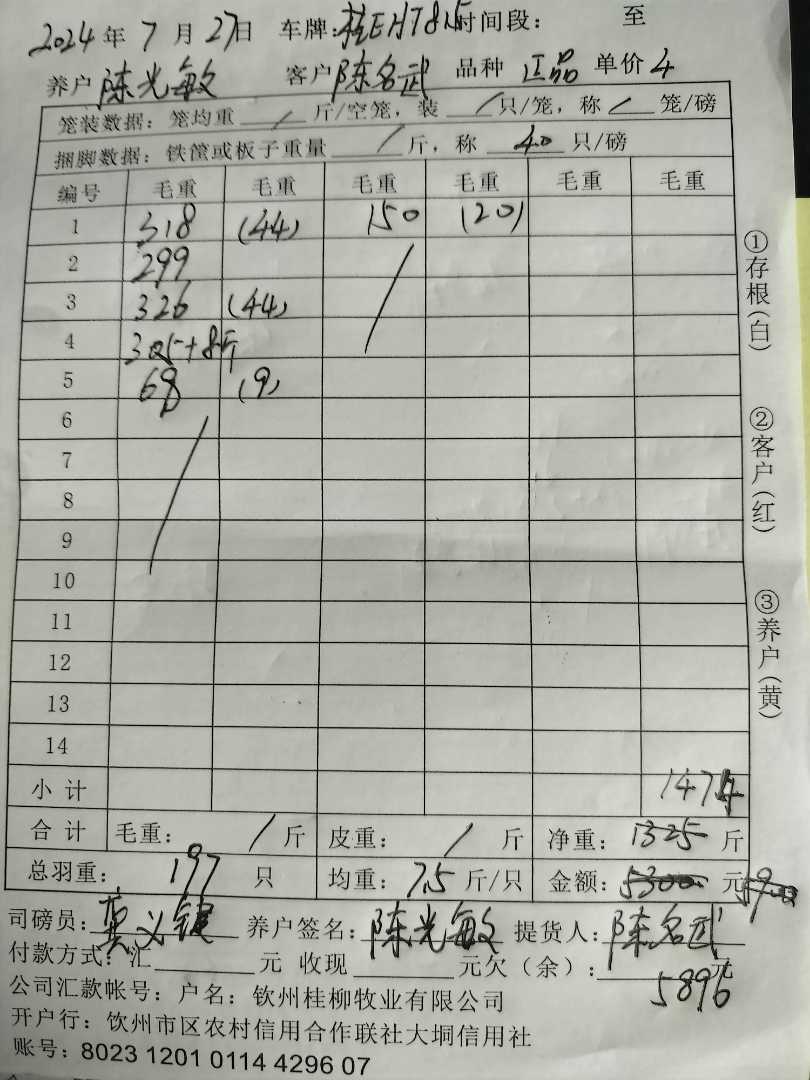 2024年7月27日 车牌:桂EHT815 时间段: 至
养户 陈光敏 客户 陈名武 品种 正品 单价 4
笼装数据: 笼均重 / 斤/空笼, 装 / 只/笼, 称 / 笼/磅
捆脚数据: 铁筐或板子重量 / 斤, 称 40 只/磅
编号 毛重 毛重 毛重 毛重 毛重 毛重
1 318 (44) 150 (20)
2 299 /
3 326 (44)
4 305+8斤
5 68 (9)
6 /
7
8
9
10
11
12
13
14
小计 1474
合计 毛重: / 斤 皮重: / 斤 净重: 1325 斤
总羽重: 197 只 均重: 7.5 斤/只 金额: 5300 元
司磅员: 义 养户签名: 陈光敏 提货人: 陈名武
付款方式: 汇 元 收现 元欠(余): 5896元
公司汇款帐号: 户名: 钦州桂柳牧业有限公司
开户行: 钦州市区农村信用合作联社大垌信用社
账号: 8023 1201 0114 4296 07
①存根(白)
②客户(红)
③养户(黄)